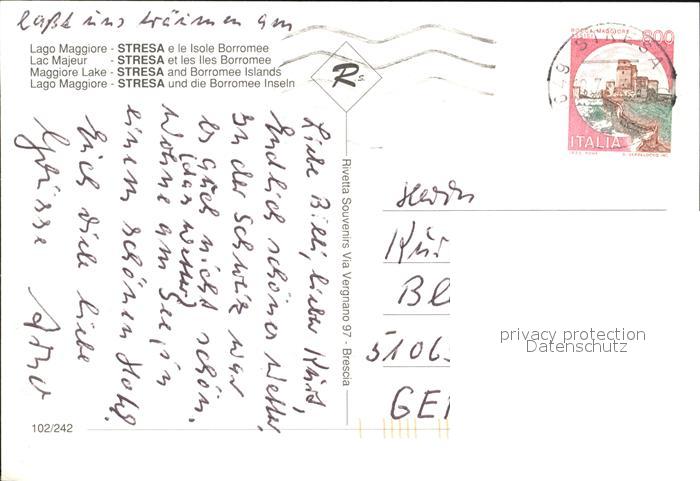 laßt uns träumen am
Lago Maggiore - STRESA e le Isole Borromee
Lac Majeur - STRESA et les Iles Borromee
Maggiore Lake - STRESA and Borromee Islands
Lago Maggiore - STRESA und die Borromee Inseln
R s.
STRESA
ROCCA MAGGIORE
800
ITALIA
Liebe Billi, lieber Kurt,
Endlich schönes Wetter,
In der Schweiz war
es auch nicht schön.
(das Wetter)
Wohne am See in
einem schönen Hotel
Euch viele liebe
Grüsse
Rivetta Souvenirs Via Vergnano 97 - Brescia
Herrn
Kur
BL
5106
GE
privacy protection
Datenschutz
102/242